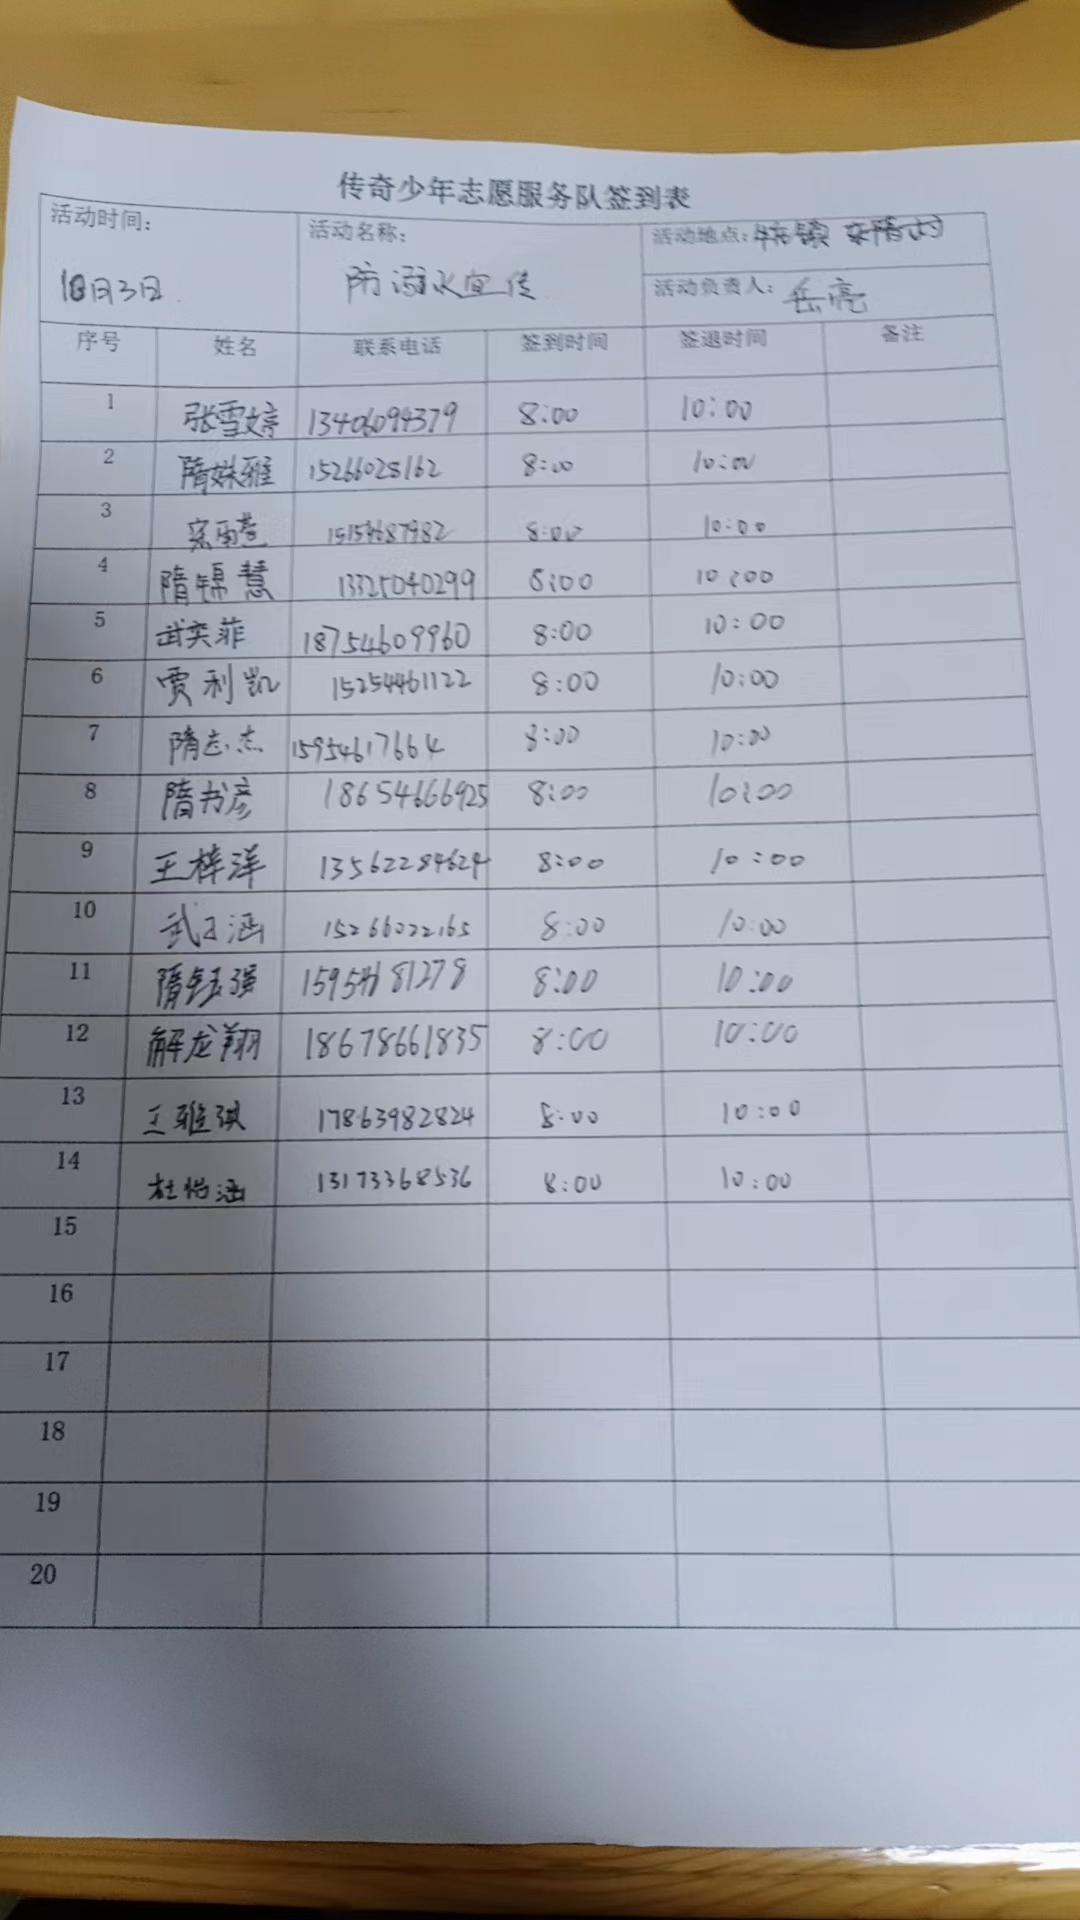 传奇少年志愿服务队签到表
活动时间： 活动名称： 活动地点：牛庄镇 东隋村
10月3日 防溺水宣传 活动负责人：岳亮
序号 姓名 联系电话 签到时间 签退时间 备注
1 张雪婷 13406094379 8:00 10:00
2 隋姝雅 15266028162 8:00 10:00
3 15154687982 8:00 10:00
4 隋锦慧 13325040299 8:00 10:00
5 武奕菲 18754609960 8:00 10:00
6 贾利凯 15254461122 8:00 10:00
7 隋志杰 15954617664 8:00 10:00
8 隋书彦 18654666925 8:00 10:00
9 王梓洋 13562284624 8:00 10:00
10 武子涵 15266022165 8:00 10:00
11 隋钰强 8:00 10:00
12 解龙翔 18678661835 8:00 10:00
13 王雅琪 17863982824 8:00 10:00
14 杜怡涵 13173368536 8:00 10:00
15
16
17
18
19
20